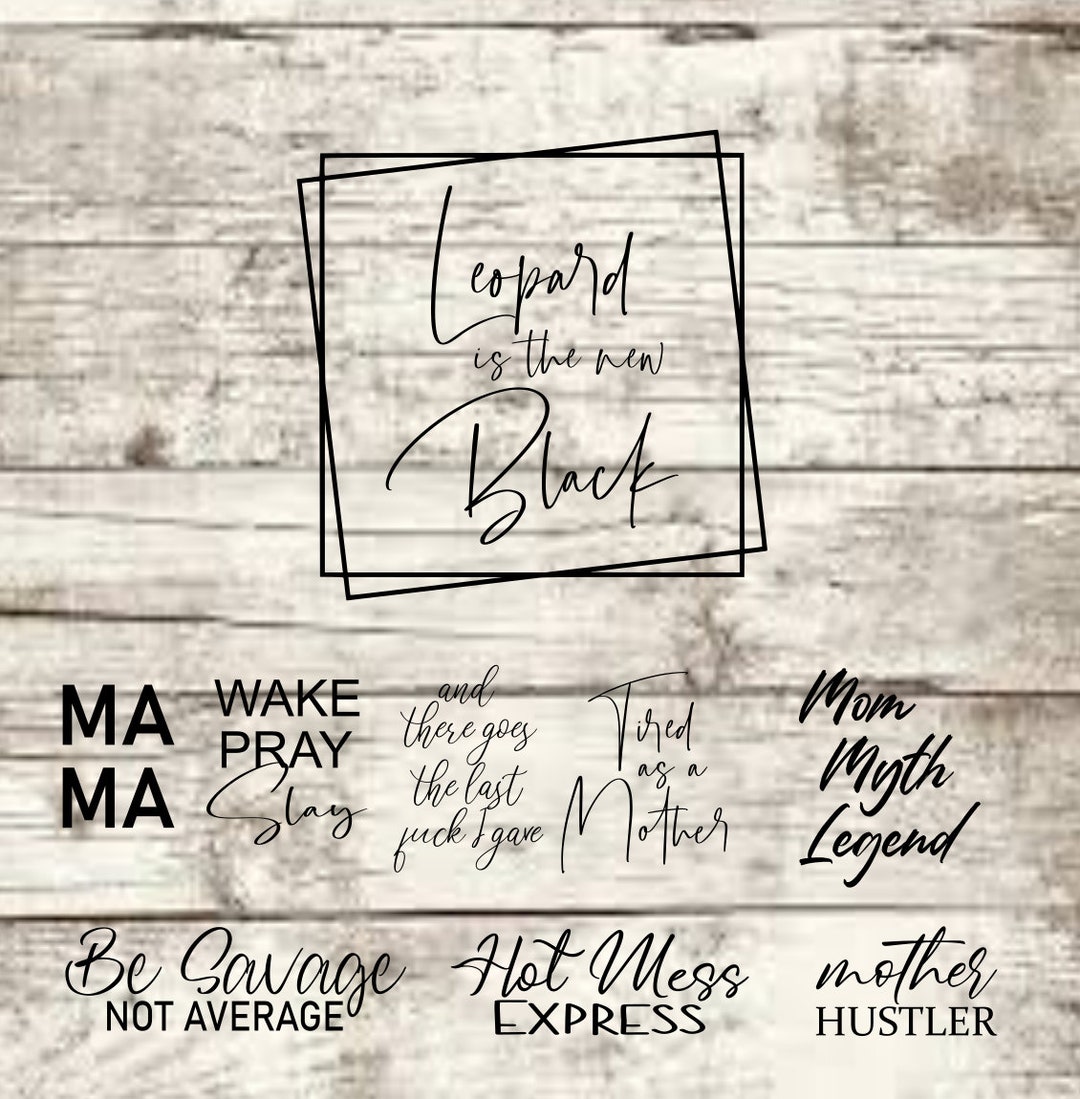 Leopard
is the new
Black
MA
MA
WAKE
PRAY
Slay
and
there goes
the last
fuck I gave
Tired
as a
Mother
Mom
Myth
Legend
Be Savage
NOT AVERAGE
Hot Mess
EXPRESS
mother
HUSTLER